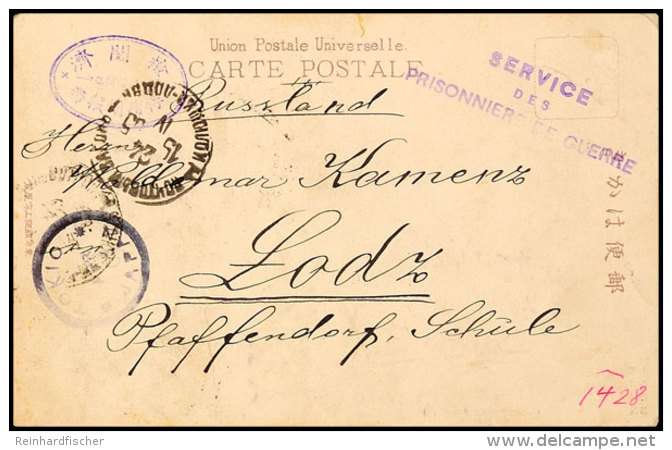 Union Postale Universelle.
CARTE POSTALE
SERVICE
DES
PRISONNIERS DE GUERRE
濟閱
Russland
Herrn
Woldemar Kamenz
in
Lodz
Pfaffendorf, Schule
郵便はかき
TOKIO JAPAN
15 24
1428
Reinhardfischer
delcampe.net